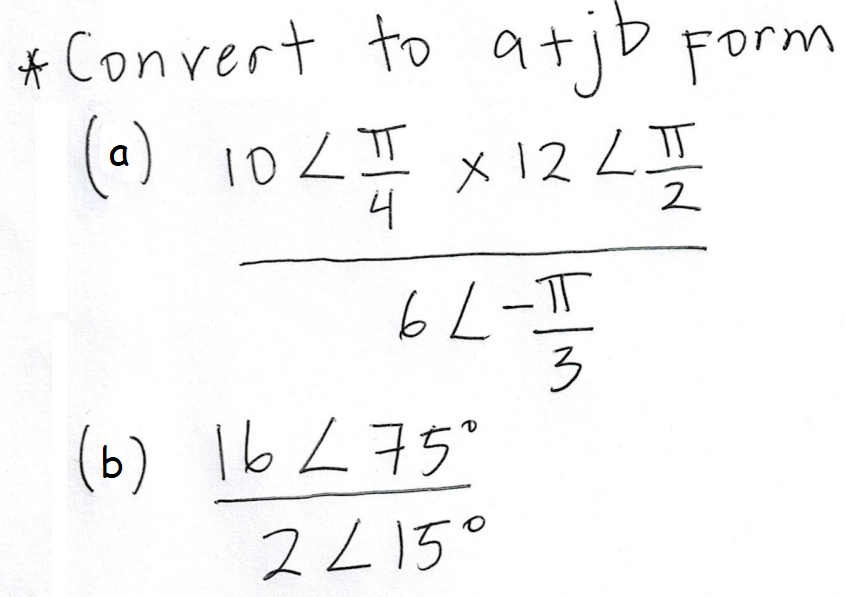 * Convert to a+jb form
(a) 10∠π/4 × 12∠π/2
6∠-π/3
(b) 16∠75°
2∠15°